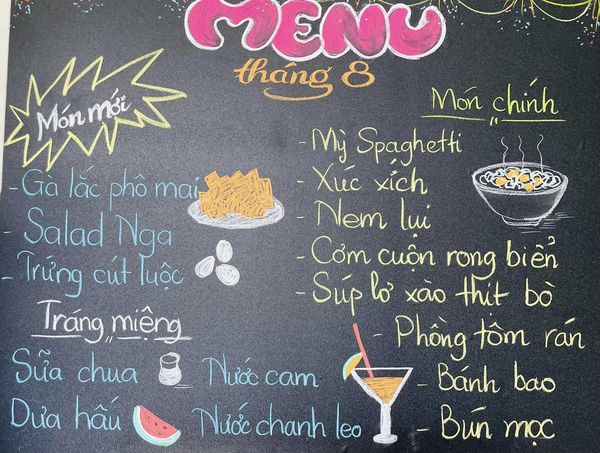 MENU
tháng 8
Món mới
- Gà lắc phô mai
- Salad Nga
- Trứng cút luộc
Tráng miệng
Sữa chua
Nước cam
Dưa hấu
Nước chanh leo
Món chính
- Mỳ Spaghetti
- Xúc xích
- Nem lụi
- Cơm cuộn rong biển
- Súp lơ xào thịt bò
- Phồng tôm rán
- Bánh bao
- Bún mọc